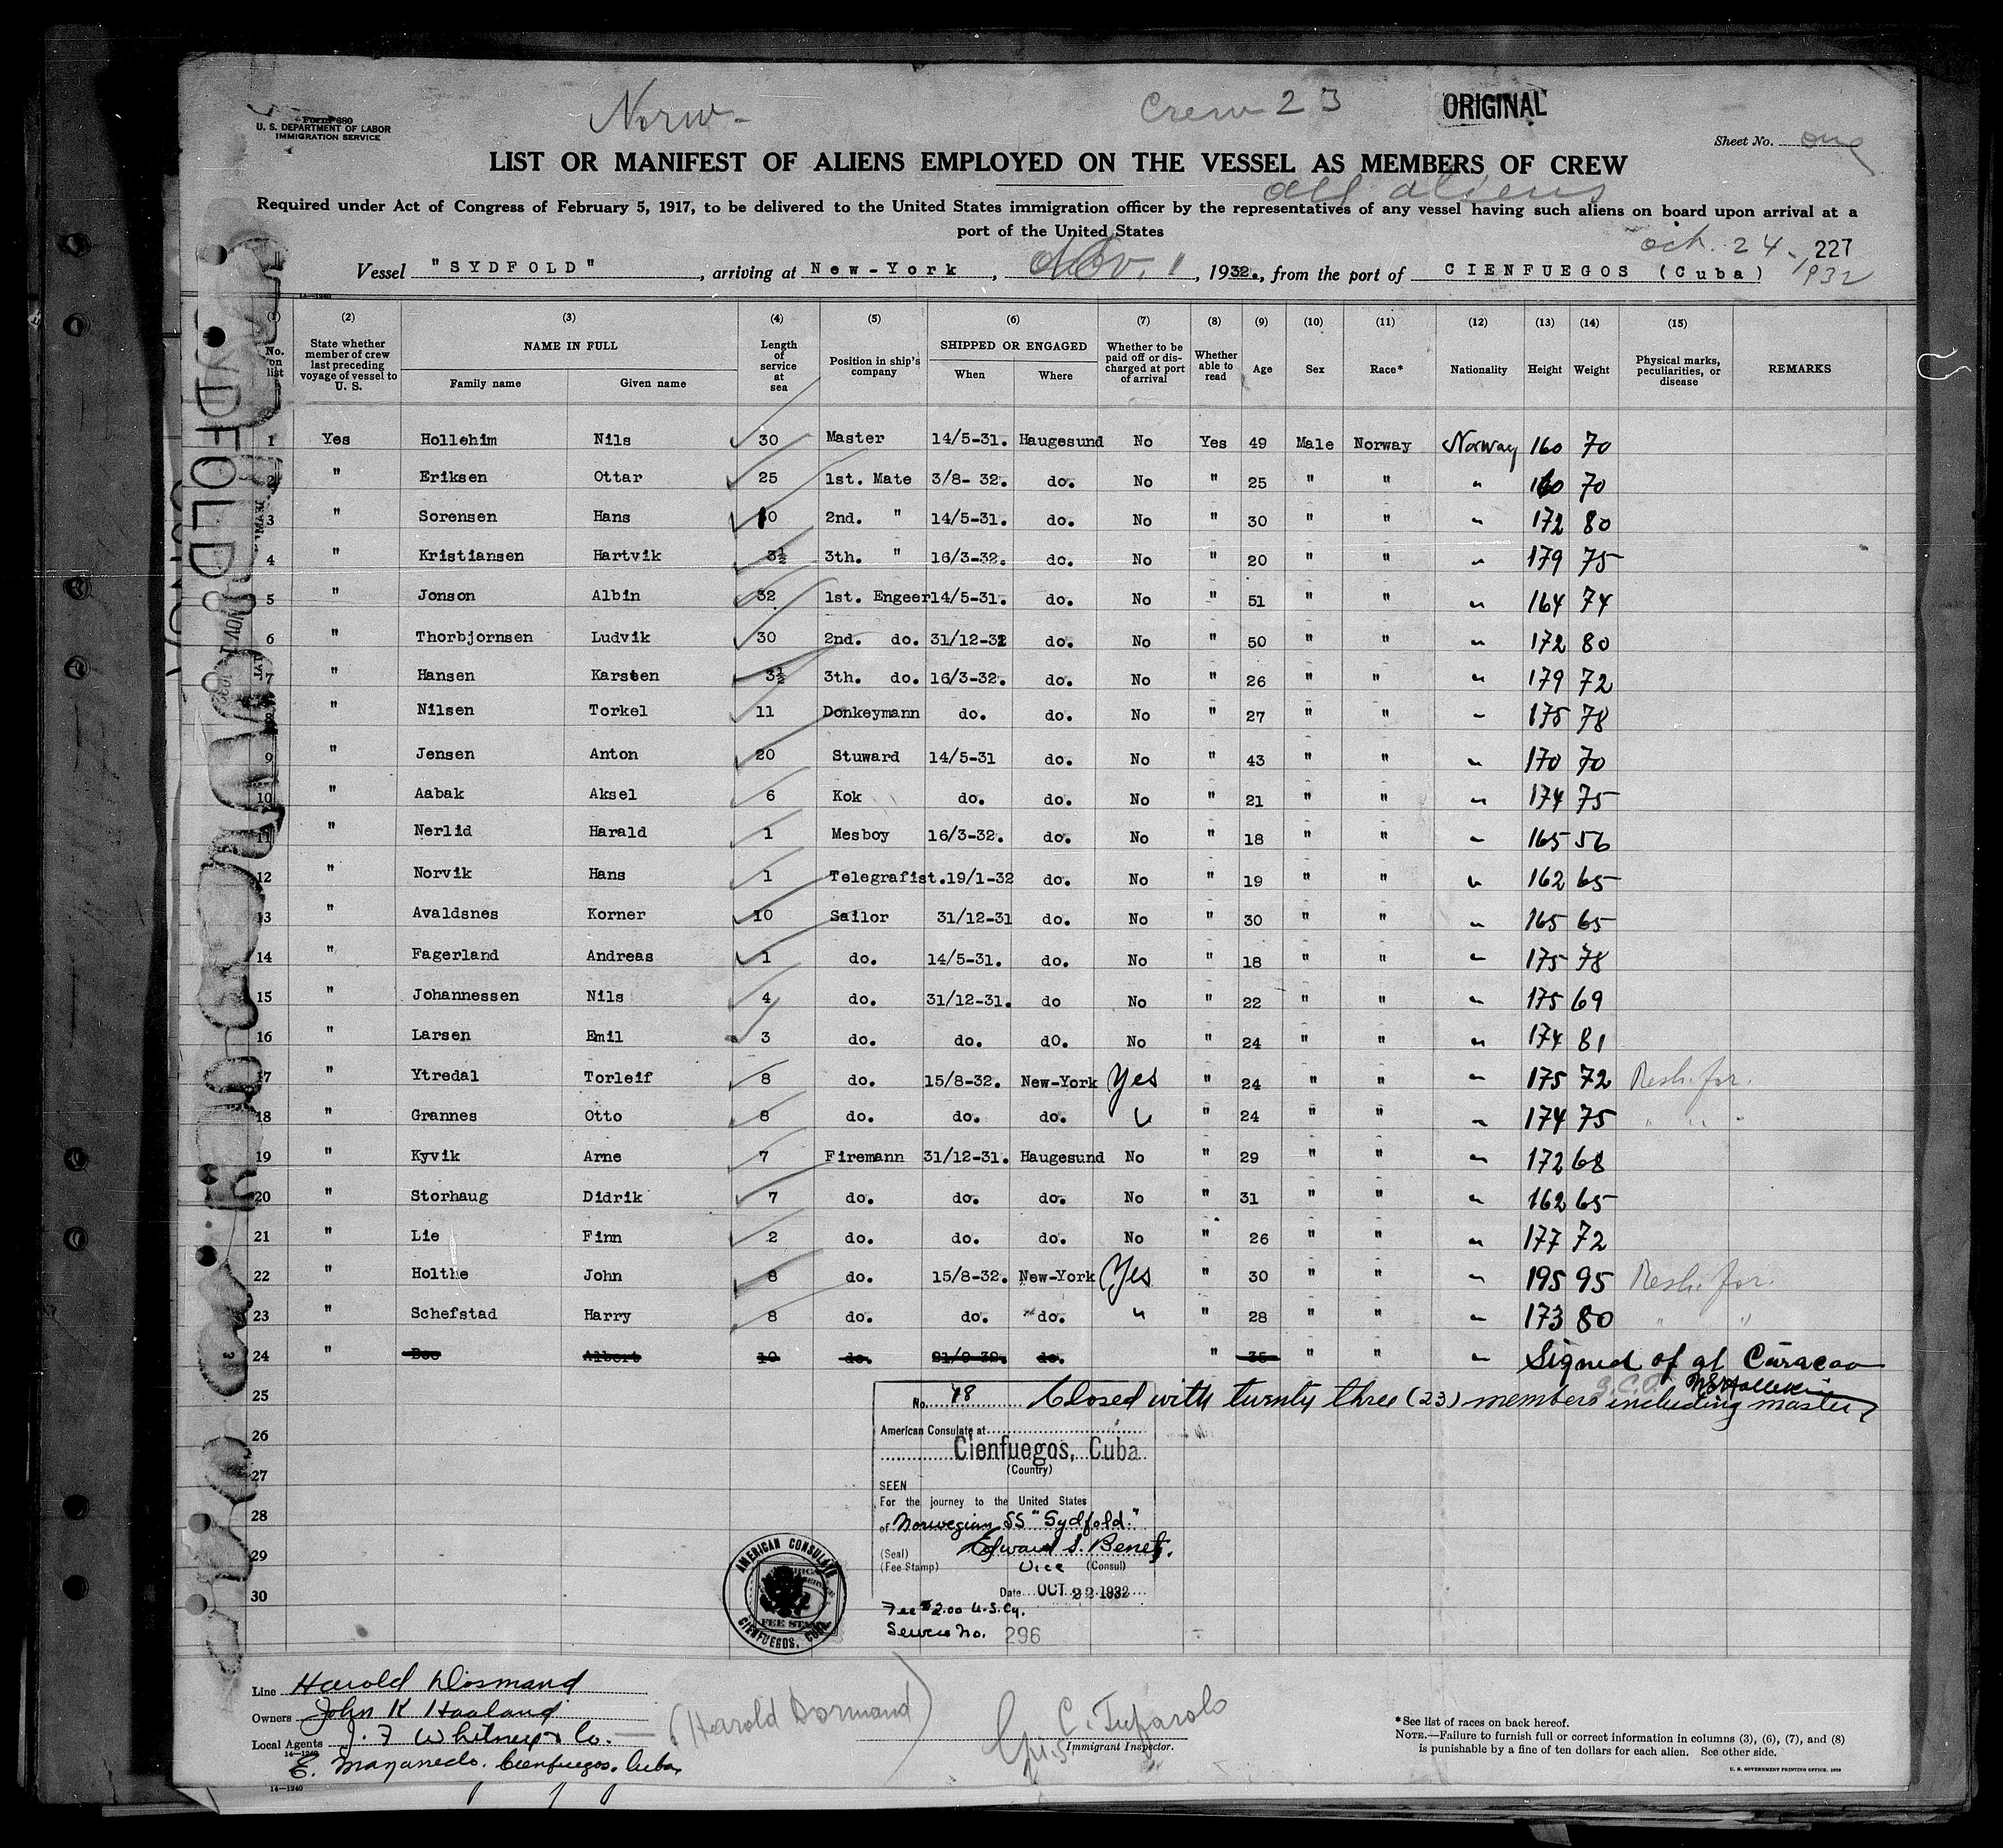 Norw-
Crew 23
ORIGINAL
Form 680
U. S. DEPARTMENT OF LABOR
IMMIGRATION SERVICE
Sheet No. one
LIST OR MANIFEST OF ALIENS EMPLOYED ON THE VESSEL AS MEMBERS OF CREW
all aliens
Required under Act of Congress of February 5, 1917, to be delivered to the United States immigration officer by the representatives of any vessel having such aliens on board upon arrival at a
port of the United States
Oct. 24 - 1932
227
Vessel "SYDFOLD", arriving at New-York, Nov. 1, 1932., from the port of CIENFUEGOS (Cuba)
14-1240
(1) (2) (3) (4) (5) (6) (7) (8) (9) (10) (11) (12) (13) (14) (15)
No. on list
State whether member of crew last preceding voyage of vessel to U. S.
NAME IN FULL
Family name
Given name
Length of service at sea
Position in ship's company
SHIPPED OR ENGAGED
When
Where
Whether to be paid off or discharged at port of arrival
Whether able to read
Age
Sex
Race*
Nationality
Height
Weight
Physical marks, peculiarities, or disease
REMARKS
1 Yes Hollehim Nils 30 Master 14/5-31. Haugesund No Yes 49 Male Norway Norway 160 70
2 " Eriksen Ottar 25 1st. Mate 3/8- 32. do. No " 25 " " " 160 70
3 " Sorensen Hans 10 2nd. " 14/5-31. do. No " 30 " " " 172 80
4 " Kristiansen Hartvik 3½ 3th. " 16/3-32. do. No " 20 " " " 179 75
5 " Jonson Albin 32 1st. Engeer 14/5-31. do. No " 51 " " " 164 74
6 " Thorbjornsen Ludvik 30 2nd. do. 31/12-32 do. No " 50 " " " 172 80
7 " Hansen Karsten 3½ 3th. do. 16/3-32. do. No " 26 " " " 179 72
8 " Nilsen Torkel 11 Donkeymann do. do. No " 27 " " " 175 78
9 " Jensen Anton 20 Stuward 14/5-31 do. No " 43 " " " 170 70
10 " Aabak Aksel 6 Kok do. do. No " 21 " " " 174 75
11 " Nerlid Harald 1 Mesboy 16/3-32. do. No " 18 " " " 165 56
12 " Norvik Hans 1 Telegrafist. 19/1-32 do. No " 19 " " " 162 65
13 " Avaldsnes Korner 10 Sailor 31/12-31 do. No " 30 " " " 165 65
14 " Fagerland Andreas 1 do. 14/5-31. do. No " 18 " " " 175 78
15 " Johannessen Nils 4 do. 31/12-31. do No " 22 " " " 175 69
16 " Larsen Emil 3 do. do. dO. No " 24 " " " 174 81
17 " Ytredal Torleif 8 do. 15/8-32. New-York Yes " 24 " " " 175 72 Resh. for.
18 " Grannes Otto 8 do. do. do. " " 24 " " " 174 75 " " "
19 " Kyvik Arne 7 Firemann 31/12-31. Haugesund No " 29 " " " 172 68
20 " Storhaug Didrik 7 do. do. do. No " 31 " " " 162 65
21 " Lie Finn 2 do. do. do. No " 26 " " " 177 72
22 " Holthe John 8 do. 15/8-32. New-York Yes " 30 " " " 195 95 Resh. for.
23 " Schefstad Harry 8 do. do. do. " " 28 " " " 173 80 " "
24 " Boe Albert 10 do. 21/9-32. do. " 35 " " " Signed of at Curacao
25 No. 78 Closed with twenty three (23) members including master
26 American Consulate at
Cienfuegos, Cuba
(Country)
27
SEEN
For the journey to the United States
28 of Norwegian SS "Sydfold."
(Seal) Edward S. Benet.
29 (Fee Stamp) Vice (Consul)
30 Date OCT 22 1932
Fee $2.00 U.S.Cy.
Service No. 296
AMERICAN CONSULATE
CIENFUEGOS, CUBA
FEE STAMP
Line Harold Dormand
Owners John K Haaland
Local Agents J. F Whitney & Co.
(Harold Dormand)
14-1240
Cienfuegos, Cuba
Immigrant Inspector.
*See list of races on back hereof.
NOTE.—Failure to furnish full or correct information in columns (3), (6), (7), and (8)
is punishable by a fine of ten dollars for each alien. See other side.
U. S. GOVERNMENT PRINTING OFFICE. 1929
14-1240
SYDFOLD